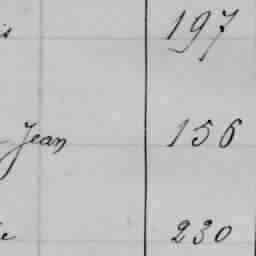 197
Jean 156
230